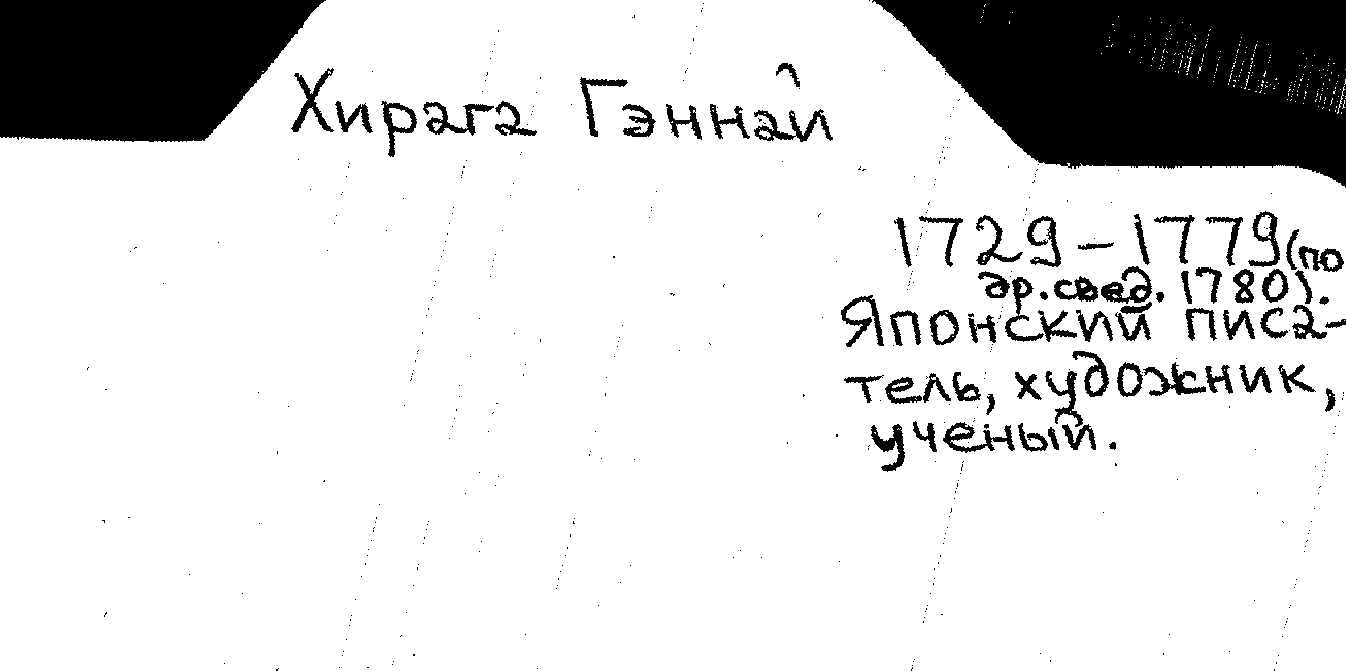 Хирага Гэннай
1729 – 1779 (по
др. свед. 1780).
Японский писа-
тель, художник,
ученый.